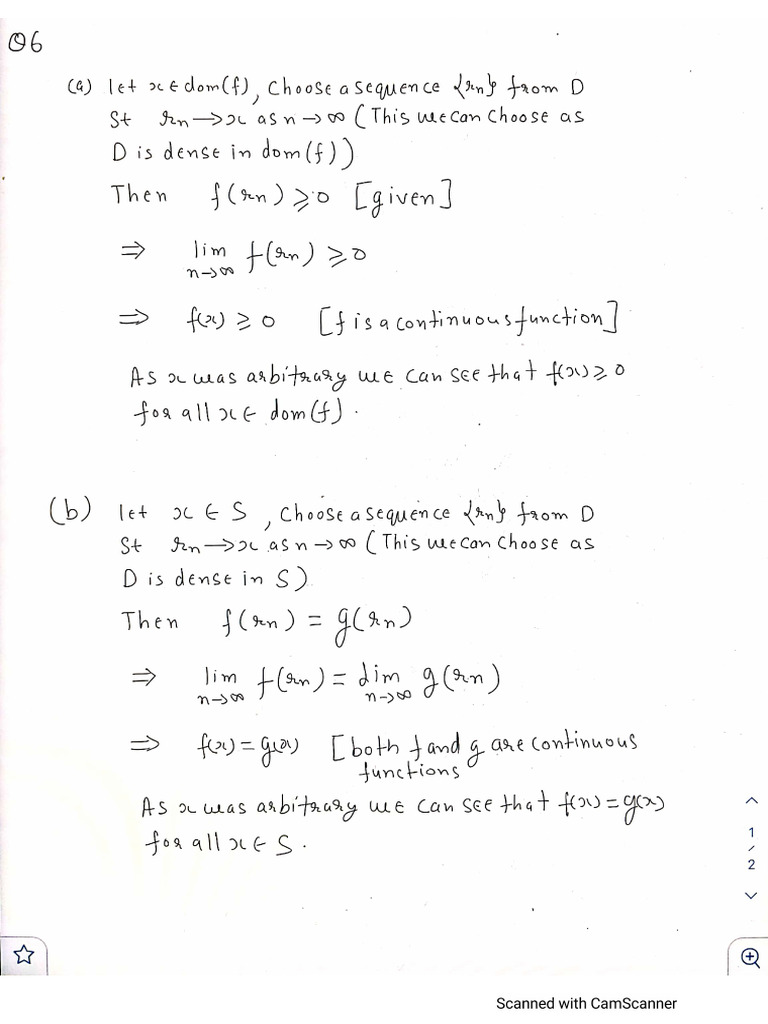 Q6
(a) let x ∈ dom(f), Choose a sequence {rn} from D
St rn → x as n → ∞ (This we can choose as
D is dense in dom(f))
Then f(rn) ≥ 0 [given]
⇒ lim n→∞ f(rn) ≥ 0
⇒ f(x) ≥ 0 [f is a continuous function]
As x was arbitrary we can see that f(x) ≥ 0
for all x ∈ dom(f).
(b) let x ∈ S, Choose a sequence {rn} from D
St rn → x as n → ∞ (This we can choose as
D is dense in S)
Then f(rn) = g(rn)
⇒ lim n→∞ f(rn) = lim n→∞ g(rn)
⇒ f(x) = g(x) [both f and g are continuous
functions
As x was arbitrary we can see that f(x) = g(x)
for all x ∈ S.
1
/
2
Scanned with CamScanner